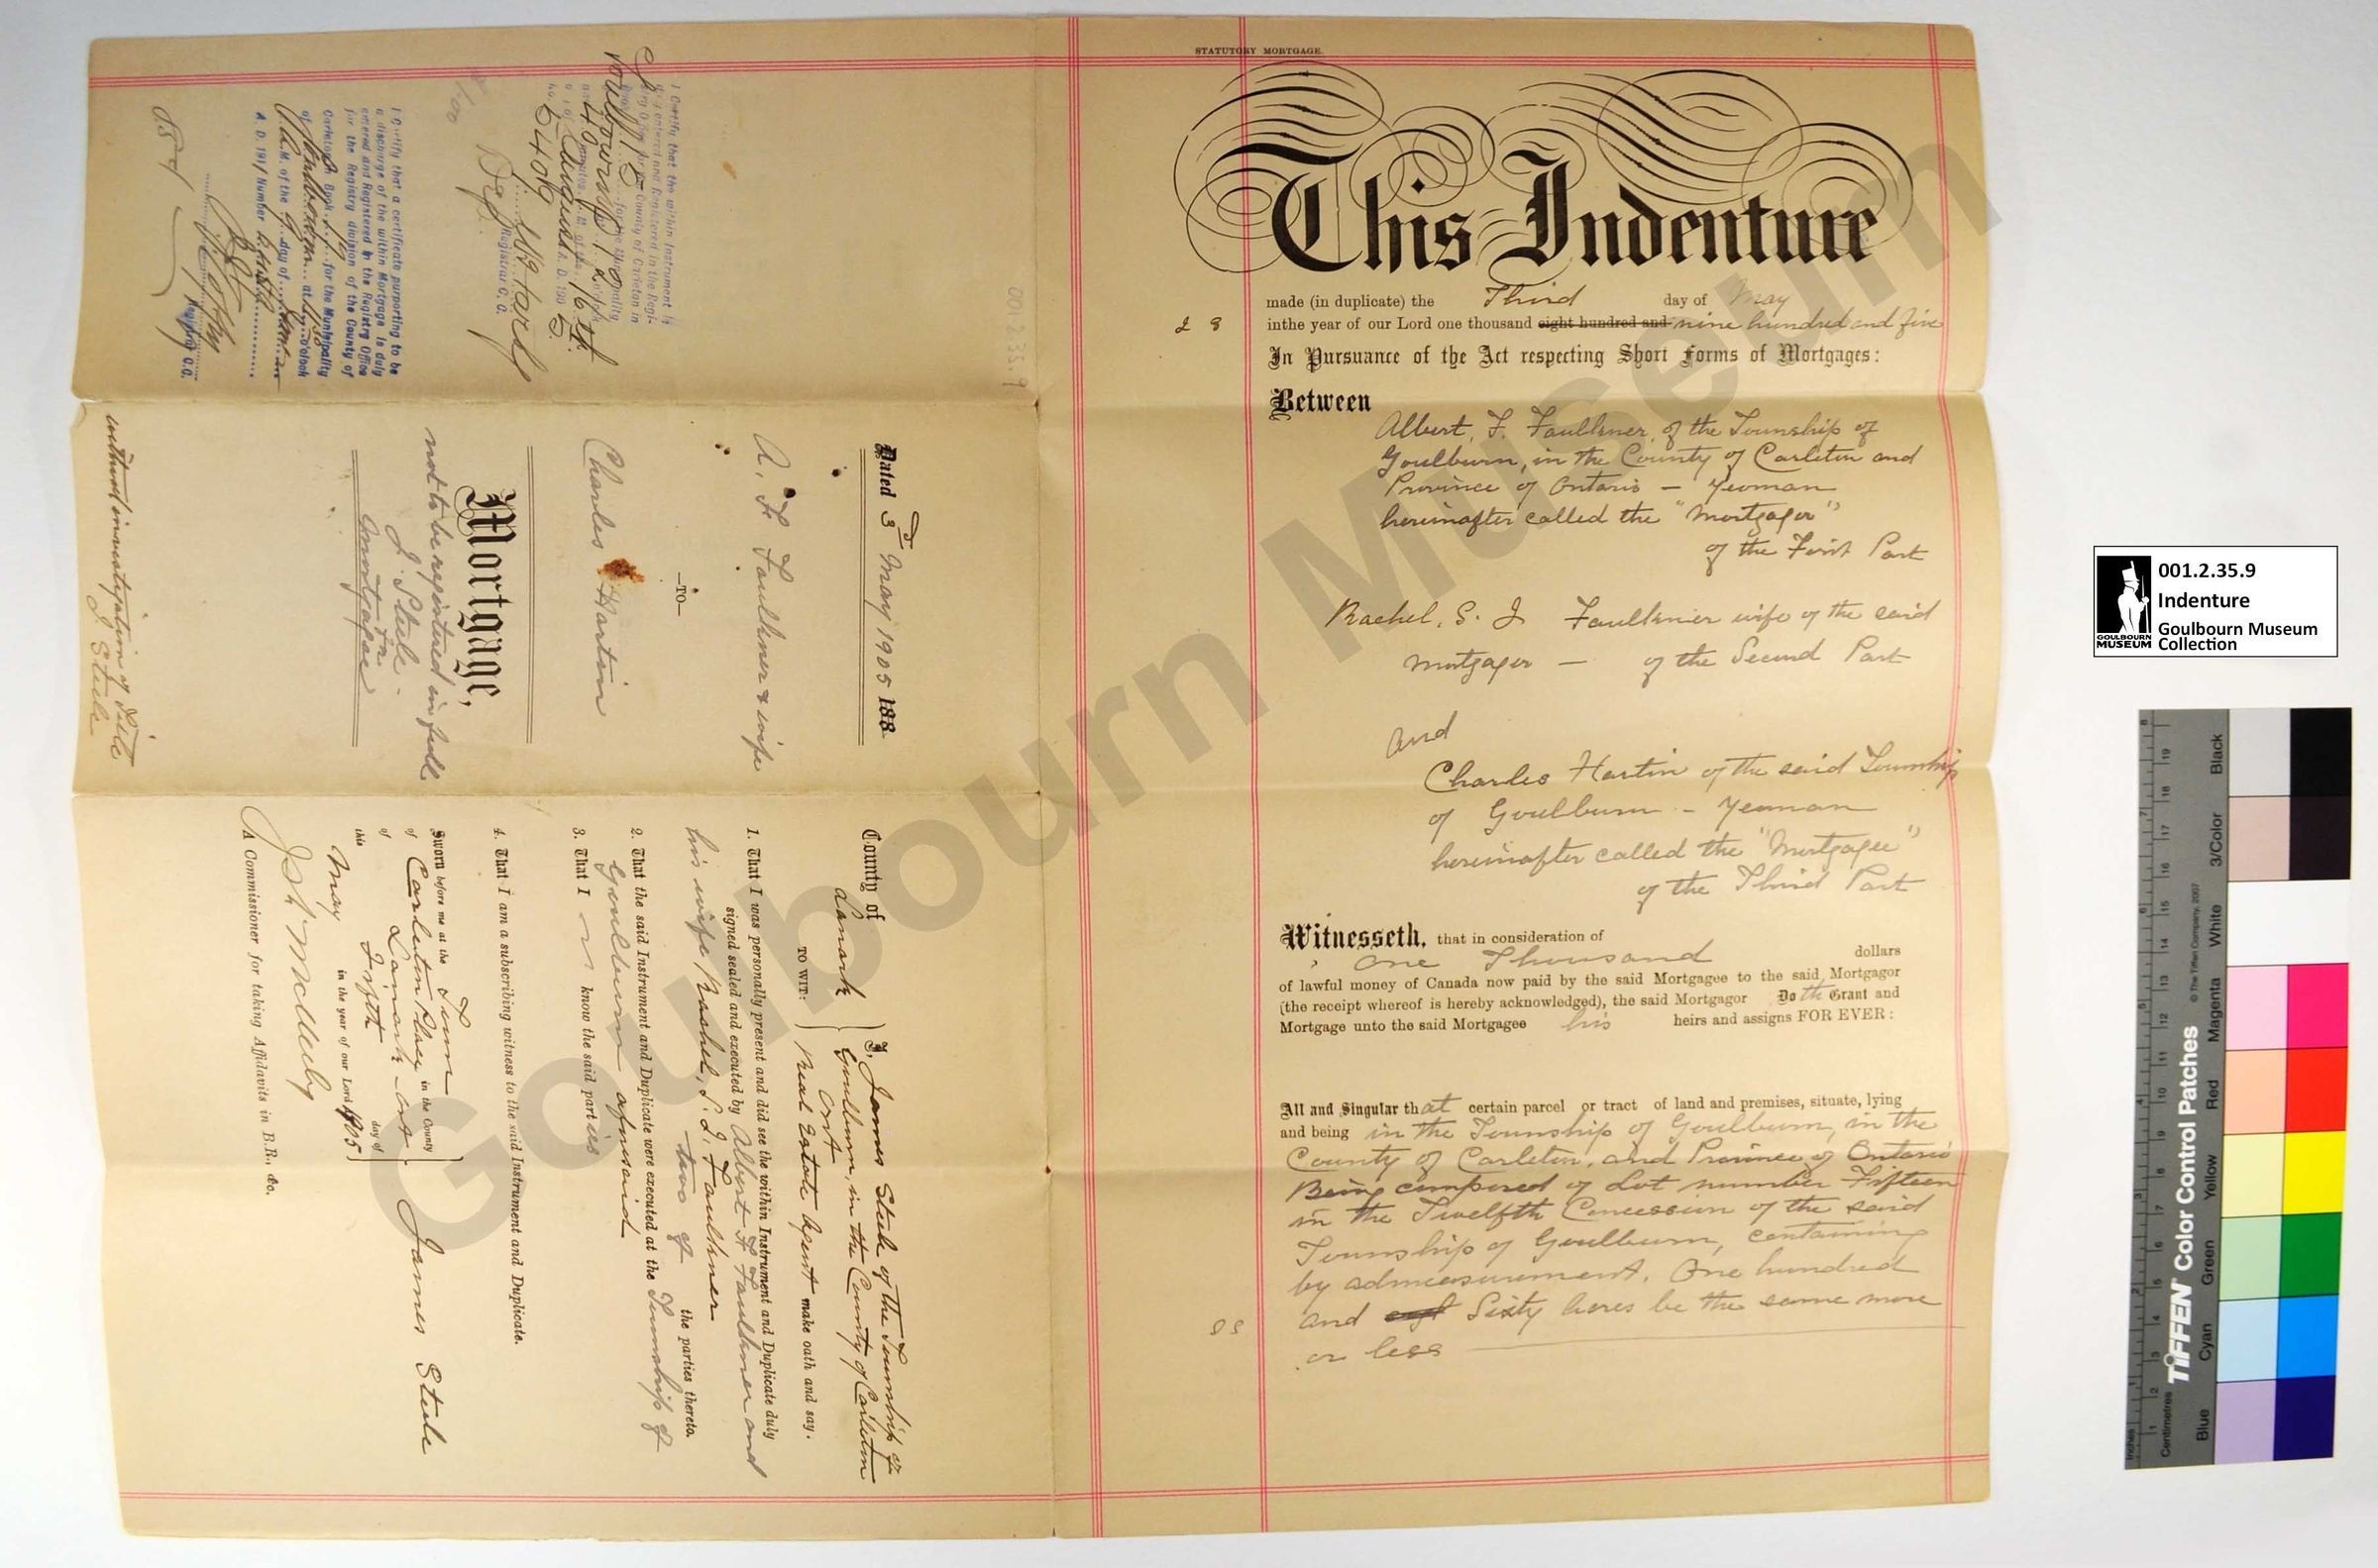 STATUTORY MORTGAGE.
This Indenture
made (in duplicate) the Third day of May
J S
in the year of our Lord one thousand eight hundred and nine hundred and five
In Pursuance of the Act respecting Short Forms of Mortgages:
Between
Albert. F. Faulkner of the Township of
Goulburn, in the County of Carleton and
Province of Ontario – Yeoman
hereinafter called the "Mortgagor"
of the First Part
Rachel. S. J Faulkner wife of the said
Mortgagor — of the Second Part
and
Charles Hartin of the said Township
of Goulburn – Yeoman
hereinafter called the "Mortgagee"
of the Third Part
Witnesseth, that in consideration of
One Thousand dollars
of lawful money of Canada now paid by the said Mortgagee to the said Mortgagor
(the receipt whereof is hereby acknowledged), the said Mortgagor Doth Grant and
Mortgage unto the said Mortgagee his heirs and assigns FOR EVER:
All and Singular that certain parcel or tract of land and premises, situate, lying
and being in the Township of Goulburn, in the
County of Carleton, and Province of Ontario
Being composed of Lot number Fifteen
in the Twelfth Concession of the said
Township of Goulburn, containing
by admeasurement. One hundred
and Sixty Acres be the same more
J S
or less
001.2.35.9
I Certify that the within Instrument is
duly entered and Registered in the Regis-
try Office for the County of Carleton in
Book 15 for the Municipality
of Goulbourn
August A. D. 1905
No. 5409
Registrar C. C.
I Certify that a certificate purporting to be
a discharge of the within Mortgage is duly
entered and Registered in the Registry Office
for the Registry division of the County of
Carleton Book 19 for the Municipality
of Goulbourn at o'clock
A.M. of the 9 day of
A. D. 191 Number
Registrar C.C.
Dated 3d May 1905 188
A. F Faulkner & wife
—TO—
Charles Hartin
Mortgage,
not to be registered in full
J. Steele -
for
Mortgagee
without investigation of title
J. Steele
County of
Lanark
TO WIT:
I, James Steele of the Township of
Goulburn, in the County of Carleton
Ont
Real Estate Agent make oath and say.
1. That I was personally present and did see the within Instrument and Duplicate duly
signed sealed and executed by Albert F Faulkner and
his wife Rachel, S. J. Faulkner
— two of the parties thereto.
2. That the said Instrument and Duplicate were executed at the Township of
Goulburn aforesaid
3. That I know the said parties
4. That I am a subscribing witness to the said Instrument and Duplicate.
Sworn before me at the Town
of Carleton Place in the County
of Lanark - Ont
this Fifth day of
May in the year of our Lord 1905
James Steele
A Commissioner for taking Affidavits in B.R., &c.
Goulbourn Museum
GOULBOURN
MUSEUM
001.2.35.9
Indenture
Goulbourn Museum
Collection
TIFFEN Color Control Patches
© The Tiffen Company, 2007
Inches
Centimetres
Blue
Cyan
Green
Yellow
Red
Magenta
White
3/Color
Black